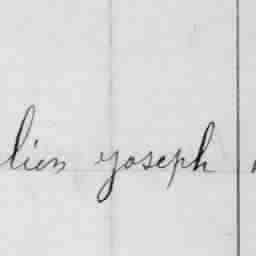 lien yoseph